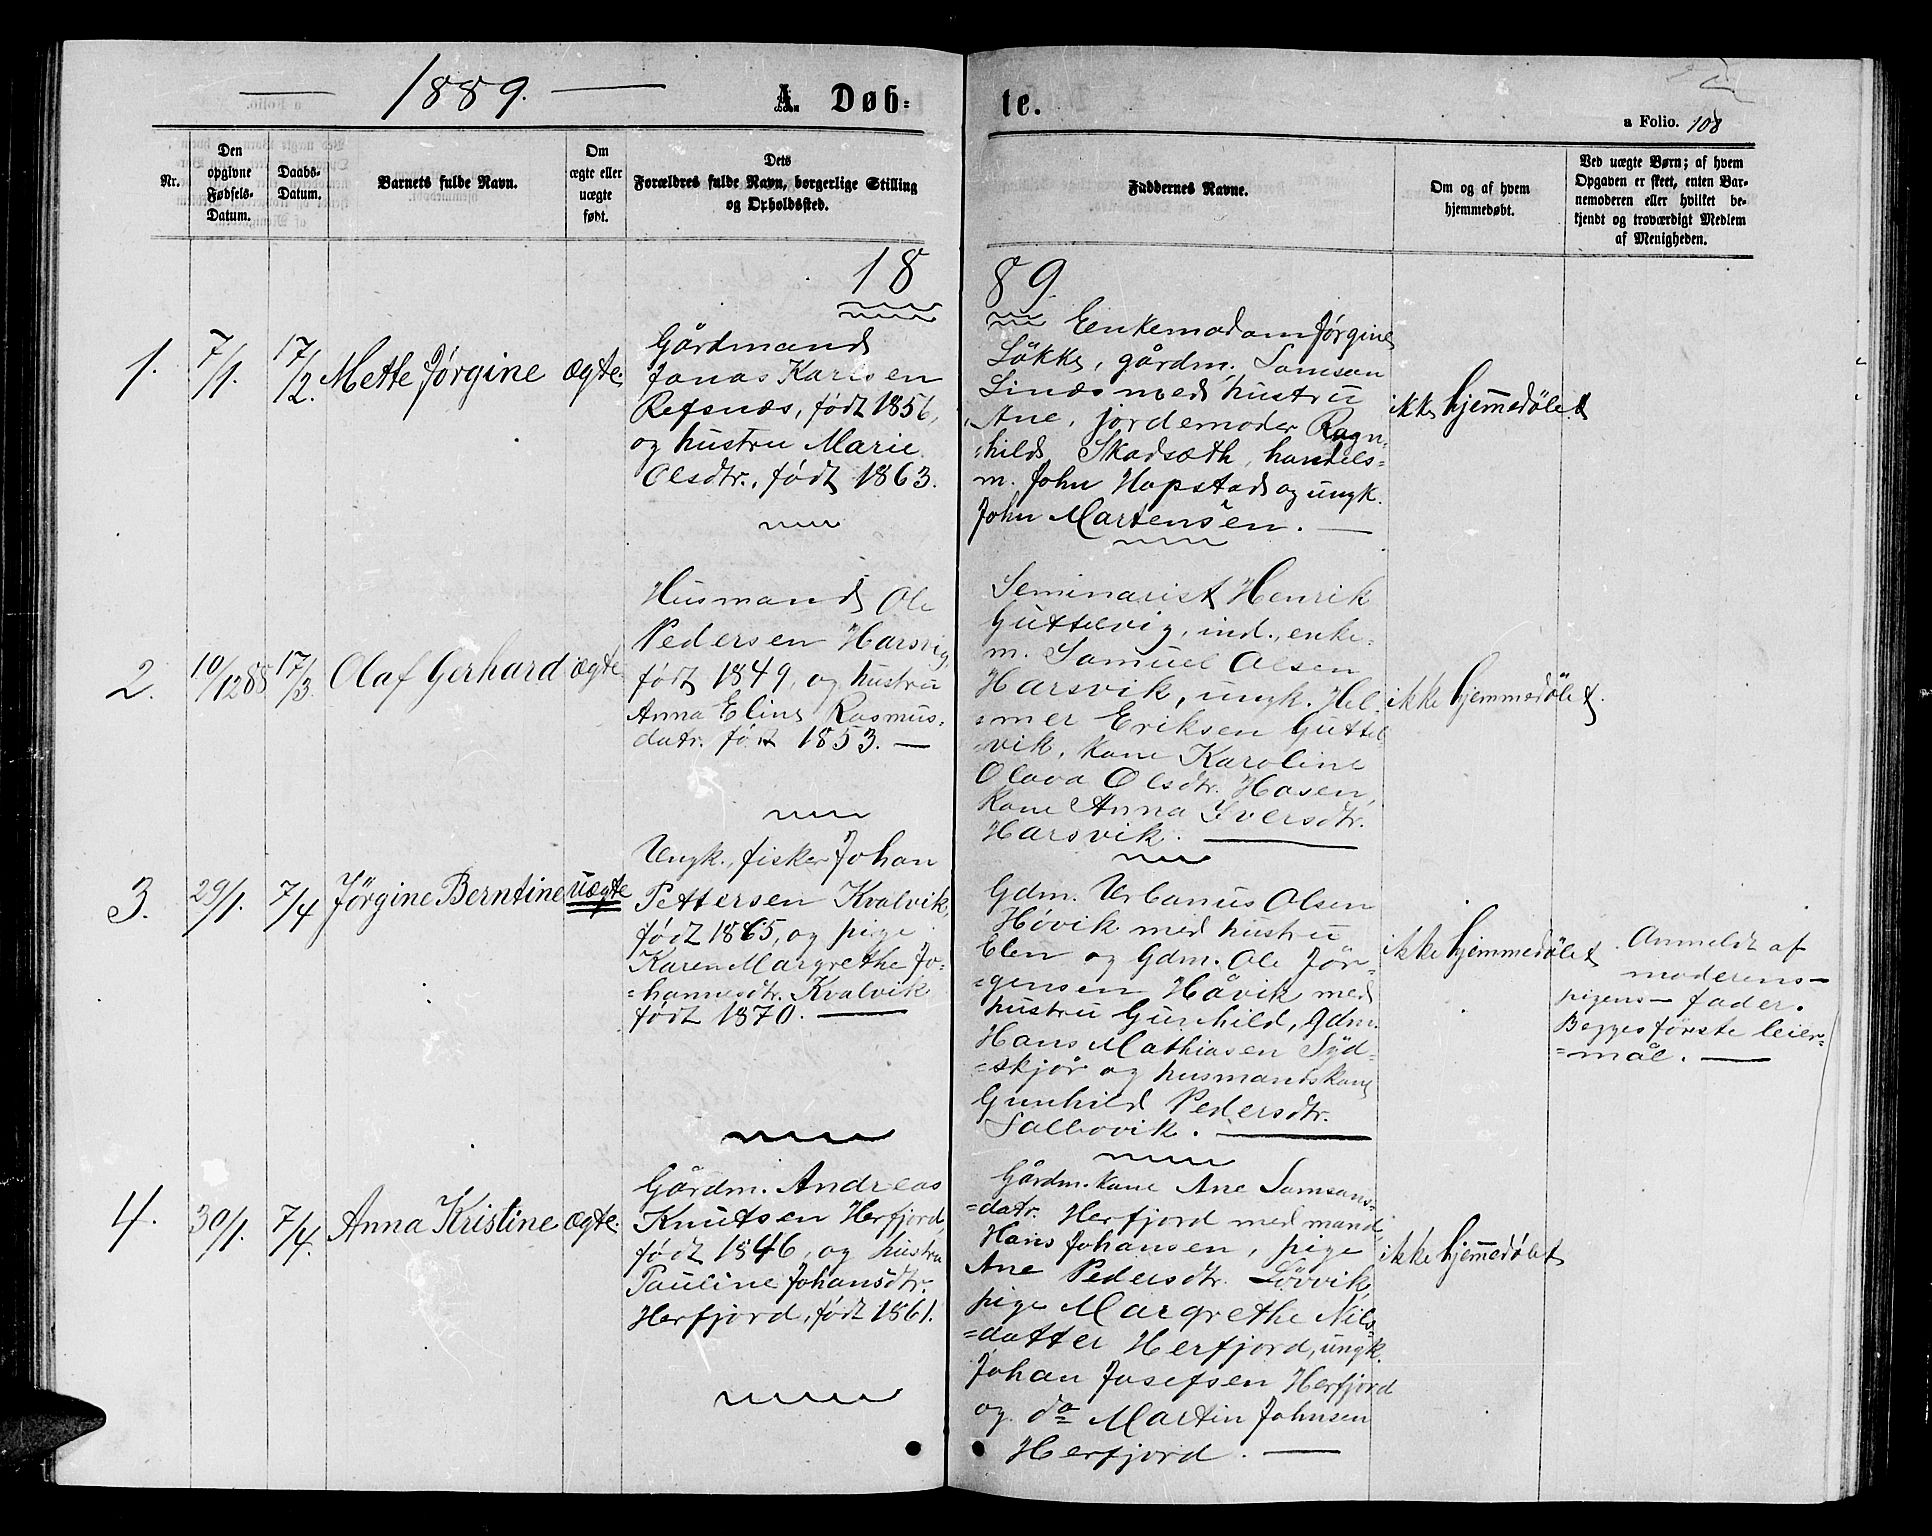 1889.
A. Døb-
te.
a Folio. 108
Nr.
Den
opgivne
Fødsels-
Datum.
Daabs-
Datum.
Barnets fulde Navn.
Om
ægte eller
uægte
født.
Dets
Forældres fulde Navn, borgerlige Stilling
og Opholdssted.
Faddernes Navne.
Om og af hvem
hjemmedøbt.
Ved uægte Børn; af hvem
Opgaven er skeet, enten Bar-
nemoderen eller hvilket be-
kjendt og troværdigt Medlem
af Menigheden.
18
89.
1.
7/1.
17/2.
Mette Jørgine
ægte.
Gårdmand
Jonas Karlsen
Refsnæs, født 1856,
og hustru Marie
Olsdtr., født 1863.
Enkemadam Jørgine
Løkke, gårdm. Samson
Linæs med hustru
Ane, jordemoder Ragn-
=hild Skadsæth, handels=
m. John Hopstad og ungk.
John Martensen.
ikke hjemmedøbt
2.
10/12 88
17/3.
Olaf Gerhard
ægte
Husmand Ole
Pedersen Harsvig,
født 1849, og hustru
Anna Eline Rasmus-
datr. født 1853.
Seminarist Henrik
Guttelvig, ind., enke-
m. Samuel Olsen
Harsvik, ungk. Hel-
=mer Eriksen Guttel
=vik, kone Karoline
Olava Olsdtr. Hosen,
Kone Anna Iversdtr.
Harsvik.
ikke hjemmedøbt.
3.
29/1.
7/4
Jørgine Berntine
uægte
Ungk., fisker Johan
Pettersen Kvalvik,
født 1865, og pige
Karen Margrethe Jo=
=hannesdtr. Kvalvik
født 1870.
Gdm. Urbanus Olsen
Høvik med hustru
Elen og Gdm. Ole Jør-
=gensen Håvik med
hustru Gunhild, Gdm.
Hans Mathiasen Syd=
=skjør og husmandskone
Gunhild Pedersdtr.
Sallovik.
ikke hjemmedøbt
Anmeldt af
moderens-
pigens- fader.
Begges første leier=
=mål.
4.
30/1.
7/4.
Anna Kristine
ægte.
Gårdm. Andreas
Knutsen Herfjord,
født 1846, og hustru
Pauline Johansdtr.
Herfjord, født 1861.
Gårdm.kone Ane Samsons=
=datr. Herfjord med mand
Hans Johansen, pige
Ane Pedersdtr. Løvvik,
pige Margrethe Nils=
=datter Herfjord, ungk.
Johan Josefsen Herfjord
og do Martin Johnsen
Herfjord.
ikke hjemmedøbt